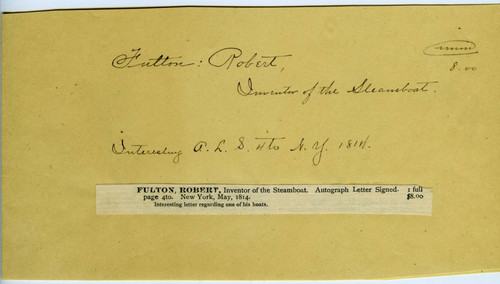 Fulton: Robert,
8.00
Inventor of the Steamboat.
Interesting A. L. S. 4to N. Y. 1814.
FULTON, ROBERT, Inventor of the Steamboat. Autograph Letter Signed. 1 full
page 4to. New York, May, 1814. $8.00
Interesting letter regarding one of his boats.